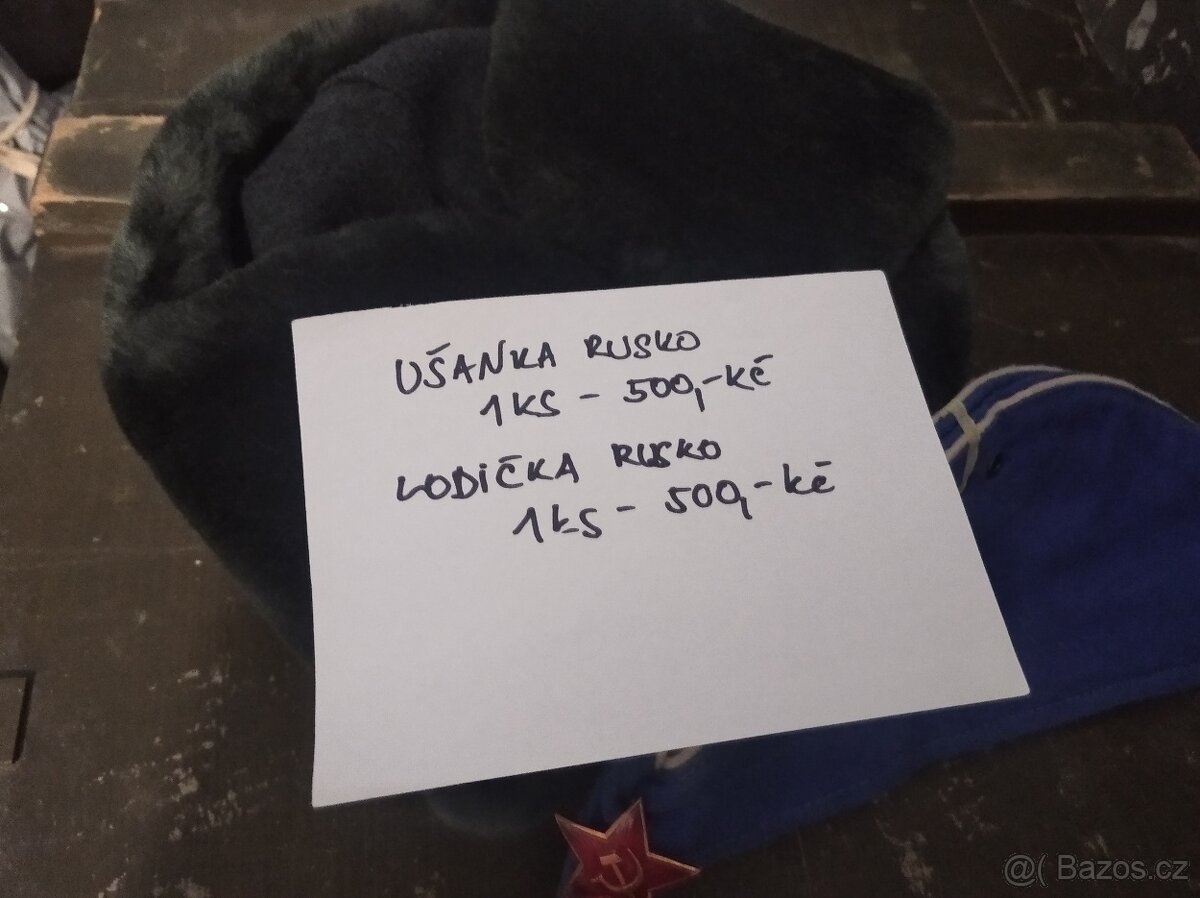 UŠANKA RUSKO
1KS - 500,-KČ
LODIČKA RUSKO
1KS - 500,-KČ
@( Bazos.cz